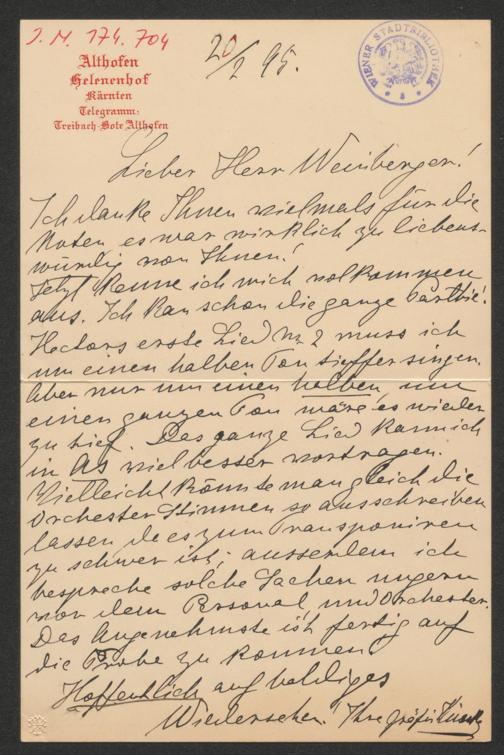 J. N. 174.704
Althofen
Helenenhof
Kärnten
Telegramm:
Treibach-Bote Althofen
20/2 95.
WIENER STADTBIBLIOTHEK
Lieber Herr Weinberger!
Ich danke Ihnen vielmals für die
Noten, es war wirklich zu liebens-
würdig von Ihnen!
Jetzt kenne ich mich volkommen
aus. Ich kan schon die ganze Parthie!
Hectors erste Lied Nr 2 muss ich
um einen halben Ton tieffer singen.
Aber nur um einen halben, um
einen ganzen Ton wäre es wieder
zu tief. Das ganze Lied kann ich
in As viel besser vortragen.
Vielleicht könnte man gleich die
Orchester Stimmen so ausschreiben
lassen da es zum Transponiren
zu schwer ist, ausserdem ich
bespreche solche Sachen ungern
vor dem Personal und Orchester.
Das Angenehmste ist fertig auf
die Probe zu kommen.
Hoffentlich auf baldiges
Wiedersehen. Ihre